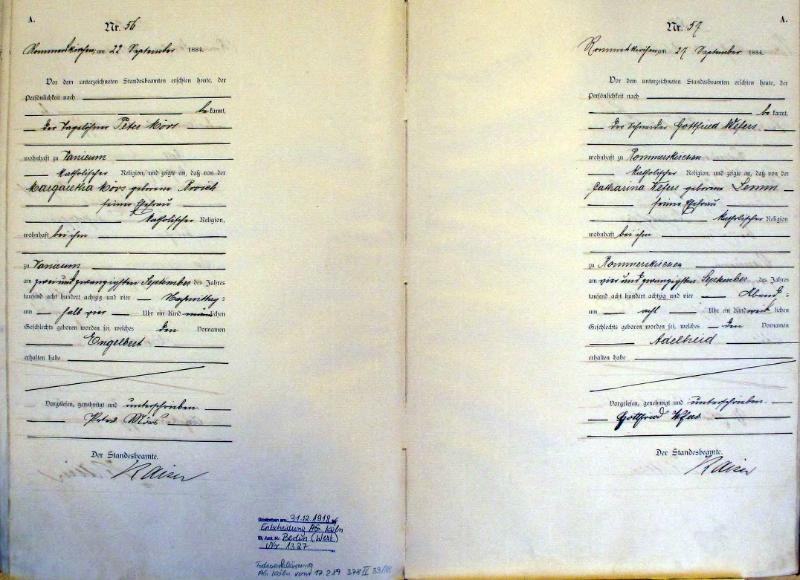 A.
Nr. 56
Rommerskirchen, am 22 September 1884.
Vor dem unterzeichneten Standesbeamten erschien heute, der
Persönlichkeit nach
bekannt,
der Tagelöhner Peter Mörs
wohnhaft zu Vanikum
katholischer Religion, und zeigte an, daß von der
Margaretha Mörs geborene Broich
seiner Ehefrau
katholischer Religion,
wohnhaft bei ihm
zu Vanikum
am zwei und zwanzigsten September des Jahres
tausend acht hundert achtzig und vier Nachmittag
um halb vier Uhr ein Kind männlichen
Geschlechts geboren worden sei, welches den Vornamen
Engelbert
erhalten habe
Vorgelesen, genehmigt und unterschrieben
Peter Mörs
Der Standesbeamte.
Kaiser
31.12.1918
Entscheidung AG. Köln
Berlin (West)
Nr. 1327
Todeserklärung
AG Köln vom 17.2.89 378 II 33/88
A.
Nr. 57
Rommerskirchen, am 27 September 1884.
Vor dem unterzeichneten Standesbeamten erschien heute, der
Persönlichkeit nach
bekannt,
der Schneider Gottfried Wefers
wohnhaft zu Rommerskirchen
katholischer Religion, und zeigte an, daß von der
Catharina Wefers geborene
seiner Ehefrau
katholischer Religion
wohnhaft bei ihm
zu Rommerskirchen
am vier und zwanzigsten September des Jahres
tausend acht hundert achtzig und vier Abend
um acht Uhr ein Kind weiblichen
Geschlechts geboren worden sei, welches den Vornamen
Adelheid
erhalten habe
Vorgelesen, genehmigt und unterschrieben
Gottfried Wefers
Der Standesbeamte.
Kaiser